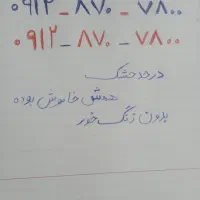 ۰۹۱۲ - ۸۷۰ - ۷۸۰۰
۰۹۱۲ - ۸۷۰ - ۷۸۰۰
در حد خشک
همش خاموش بوده
بدون زنگ خور